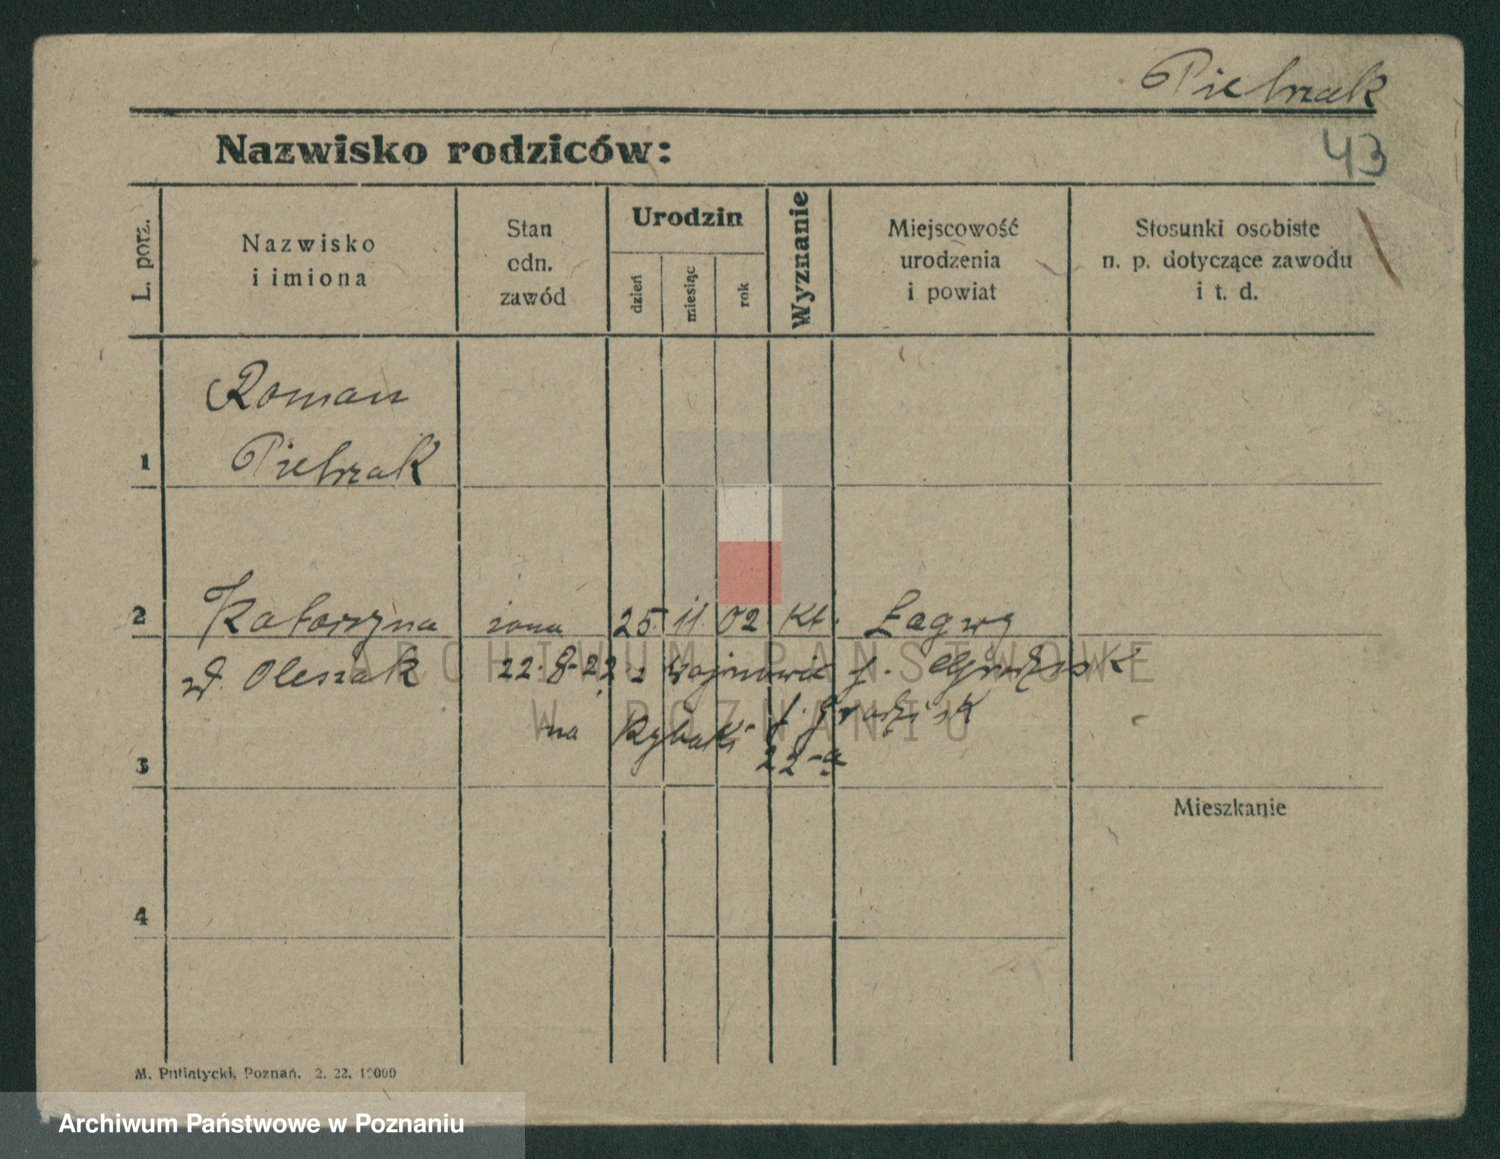 Pietrzak
43
Nazwisko rodziców:
L. porz.
Nazwisko
i imiona
Stan
odn.
zawód
Urodzin
dzień
miesiąc
rok
Wyznanie
Miejscowość
urodzenia
i powiat
Stosunki osobiste
n. p. dotyczące zawodu
i t. d.
Roman
1 Pietrzak
2 Katarzyna żona 25. 11. 02. kt. Łagwy
zd. Olesiak 22.8.22 z Wojnowic p. Grodzisk
na Rybaki p. Grodzisk
3 22-a
Mieszkanie
4
M. Putiatycki, Poznań. 2. 22. 10000
ARCHIWUM PAŃSTWOWE
W POZNANIU
Archiwum Państwowe w Poznaniu